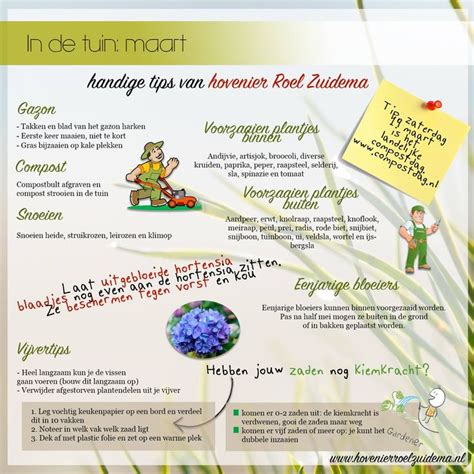 In de tuin: maart
handige tips van hovenier Roel Zuidema
Gazon
- Takken en blad van het gazon harken
- Eerste keer maaien, niet te kort
- Gras bijzaaien op kale plekken
Compost
Compostbult afgraven en
compost strooien in de tuin
Snoeien
Snoeien heide, struikrozen, leirozen en klimop
Voorzaaien plantjes
binnen
Andijvie, artisjok, broocoli, diverse
kruiden, paprika, peper, raapsteel, selderij,
sla, spinazie en tomaat
Voorzaaien plantjes
buiten
Aardpeer, erwt, knolraap, raapsteel, knoflook,
meiraap, peul, prei, radis, rode biet, snijbiet,
snijboon, tuinboon, ui, veldsla, wortel en ijs-
bergsla
Tip zaterdag
19 maart
is het
landelijke
compostdag.
www.compostdag.nl
Laat uitgebloeide hortensia
blaadjes nog even aan de hortensia zitten.
Ze beschermen tegen vorst en kou
Eenjarige bloeiers
Eenjarige bloeiers kunnen binnen voorgezaaid worden.
Pas na half mei mogen ze buiten in de grond
of in bakken geplaatst worden.
Vijvertips
- Heel langzaam kun je de vissen
gaan voeren (bouw dit langzaam op)
- Verwijder afgestorven plantendelen uit je vijver
Hebben jouw zaden nog kiemkracht?
1. Leg vochtig keukenpapier op een bord en verdeel
dit in 10 vakken
2. Noteer in welk vak welk zaad ligt
3. Dek af met plastic folie en zet op een warme plek
komen er 0-2 zaden uit: de kiemkracht is
verdwenen, gooi de zaden maar weg
komen er vijf zaden of meer op: je kunt het
dubbele inzaaien
Gardener
www.hovenierroelzuidema.nl